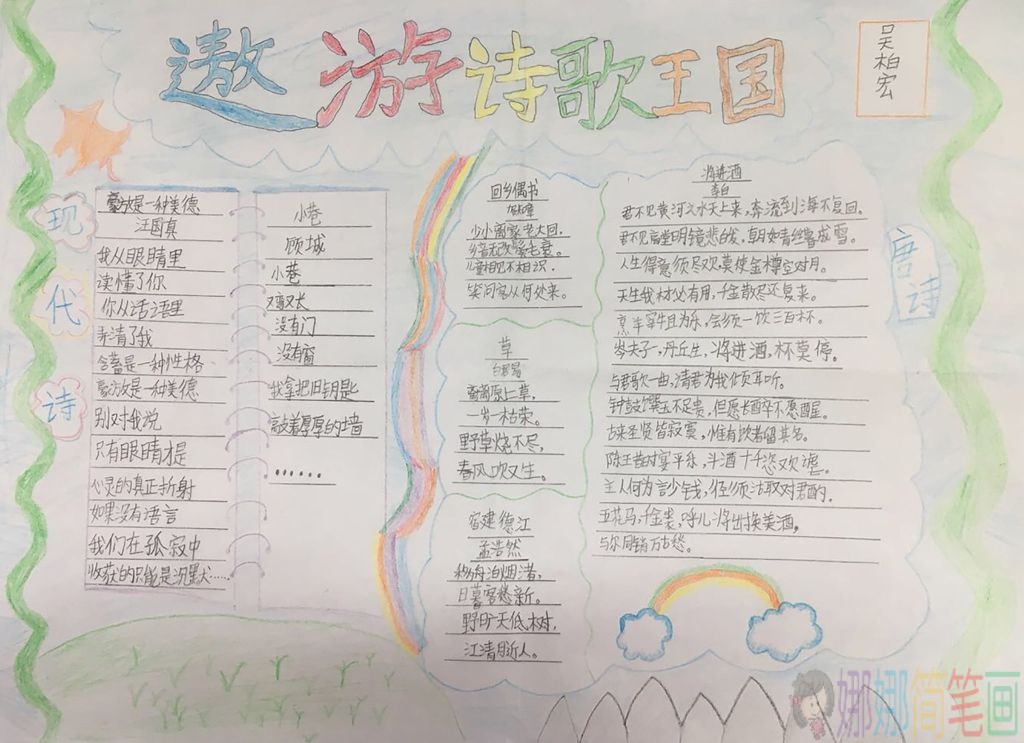 遨游诗歌王国
吴柏宏
现代诗
豪放是一种美德
汪国真
我从眼睛里
读懂了你
你从话语里
弄清了我
含蓄是一种性格
豪放是一种美德
别对我说
只有眼睛才是
心灵的真正折射
如果没有语言
我们在孤寂中
收获的只能是沉默……
小巷
顾城
小巷
又弯又长
没有门
没有窗
我拿把旧钥匙
敲着厚厚的墙
……
回乡偶书
贺知章
少小离家老大回，
乡音无改鬓毛衰。
儿童相见不相识，
笑问客从何处来。
草
白居易
离离原上草，
一岁一枯荣。
野草烧不尽，
春风吹又生。
宿建德江
孟浩然
移舟泊烟渚，
日暮客愁新。
野旷天低树，
江清月近人。
将进酒
李白
君不见黄河之水天上来，奔流到海不复回。
君不见高堂明镜悲白发，朝如青丝暮成雪。
人生得意须尽欢，莫使金樽空对月。
天生我材必有用，千金散尽还复来。
烹羊宰牛且为乐，会须一饮三百杯。
岑夫子，丹丘生，将进酒，杯莫停。
与君歌一曲，请君为我倾耳听。
钟鼓馔玉不足贵，但愿长醉不愿醒。
古来圣贤皆寂寞，惟有饮者留其名。
陈王昔时宴平乐，斗酒十千恣欢谑。
主人何为言少钱，径须沽取对君酌。
五花马，千金裘，呼儿将出换美酒，
与尔同销万古愁。
唐诗
娜娜简笔画